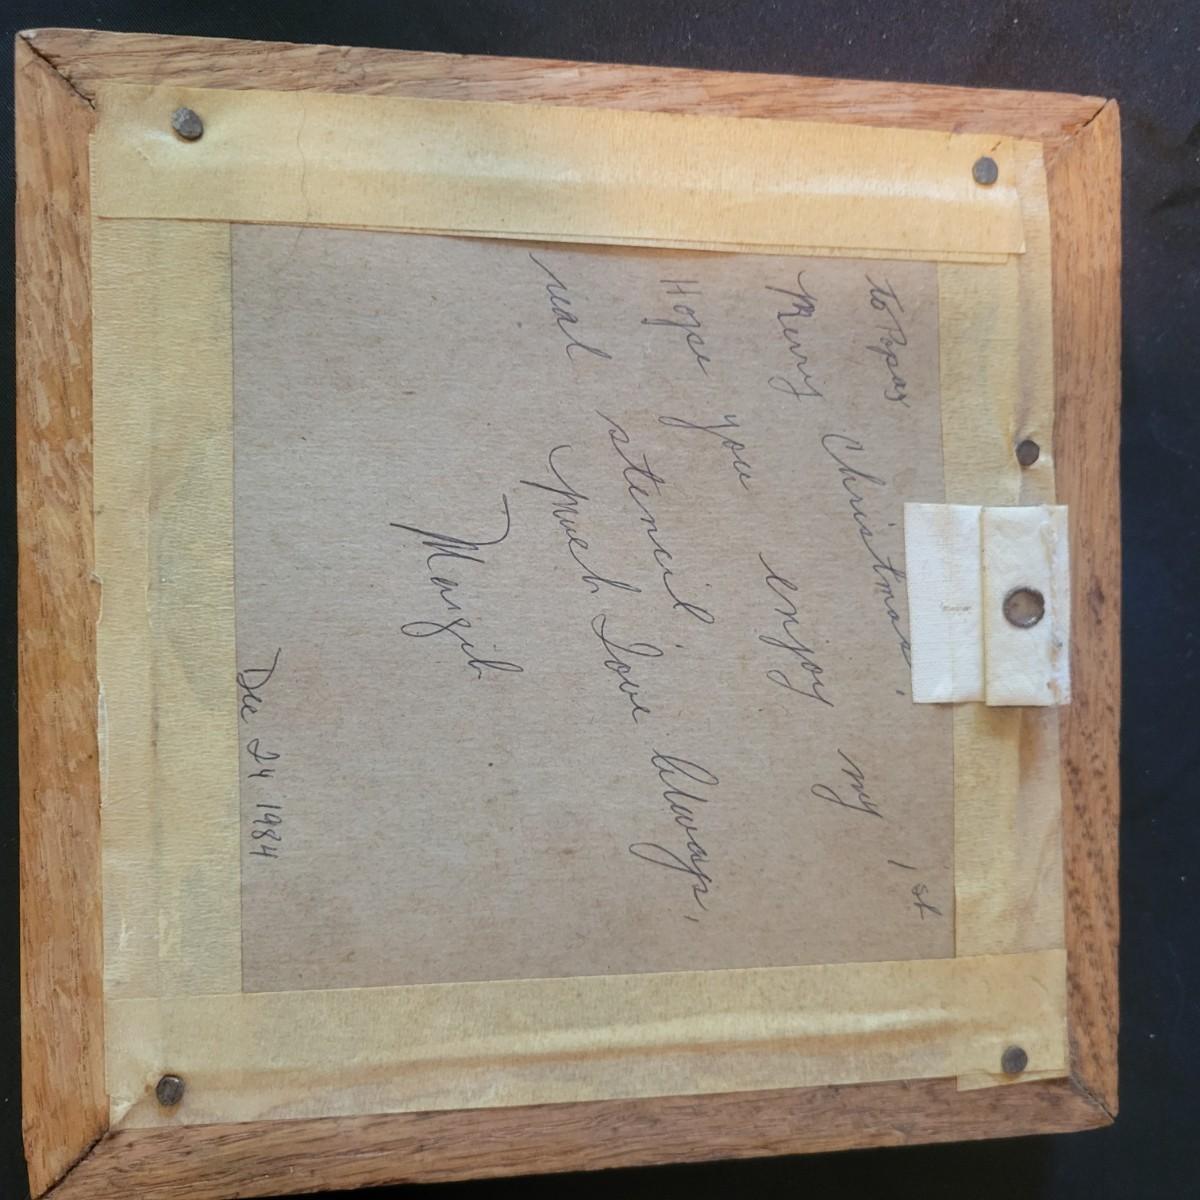 to Papa
Merry Christmas,
Hope you enjoy my 1st
real stencil.
Much Love Always,
Margih
Dec 24 1984